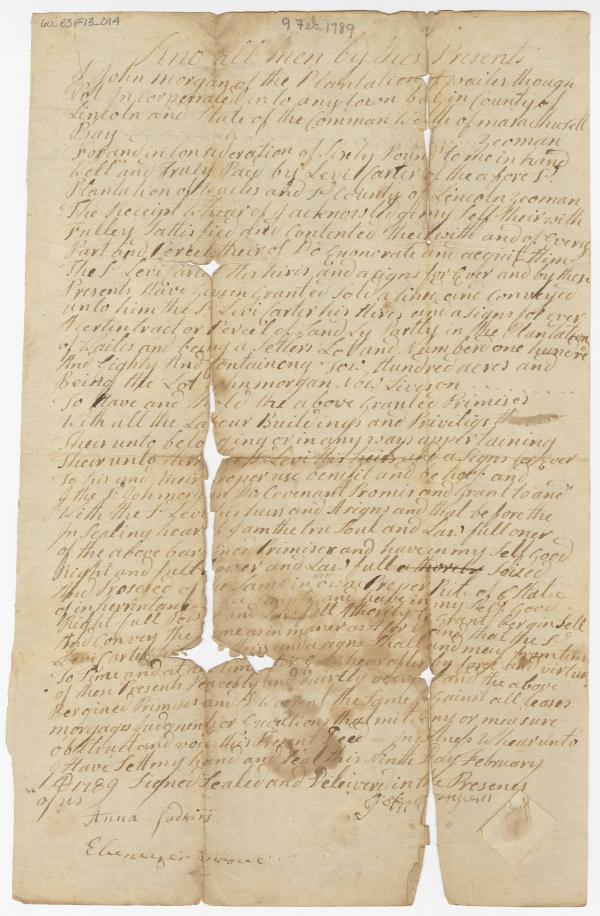 60_83F13_014
9 Feb 1789
Kno all men by thes Presents
I John morgan of the Plantation of wailes though
Not Incorperrated into any town but in County of
Lincoln and State of the Comman Welth of marachusell
Bay yeoman
For and in Consideration of Sixty Pound to me in hand
Well and Truly Paid by Levi Carter of the afore Sd
Plantation of wailes and Sd County of Lincoln yeoman
The Receipt Whear of I acknowledge my Self their with
Fulley Sattisfied and Contented their with and of Every
Part and Percel their of Do Exonorate and acquit Him
The Sd Levi Carter His hires and asigns for Ever and by these
Presents Have Given Granted Sold and Conveyed
unto him the Sd Levi Carter his Hires and asigns for ever
A certin tract or Percel of Land Ly Partly in the Plantation
of Wailes and being a Setters Lot and Number one hundred
And Eighty And Containing Hundred acres and
Being the Lot John morgan Now Lives on
To Have and Hold the above Granted Premises
With all the Labour Buildings and Priviligs
Their unto belonging or in any ways appertaining
Their unto Levi His heirs and asigns for Ever
To his and their Proper use benefit and be hoof and
I the Sd John morgan Do Covenant Promis and Grant to and
With the Sd Levi his heirs and Asigns and that before the
In Sealing hear of I am the tru Soul and Law full oner
of the above bargined Premises and have in my Self Good
Right and full Power and Law full athority Seized
And Prosesed of the Same in my own Proper Rite of Estate
of inheritance and have in my Self Good
Right full Power and Law full Athority to Grant bergin Sell
And Convey the Same as in maner as A for and that the Sd
Levi Carter his heirs and asigns Shall and may from time
To Time and at all times for Ever hear after by forge and virtue
of these Presents Peaceably and and the above
Bergined Premises and the Same Against all Leases
morgages Judgments or Executions that mite any or measure
obstruct and void this Present Deed — In witness Whear unto
I Have Sett my hand and Seal this Ninth Day February
AD 1789 Signed Sealed and Deleivered in the Presenes
of us
John
Anna Godkins
Ebenezer moore